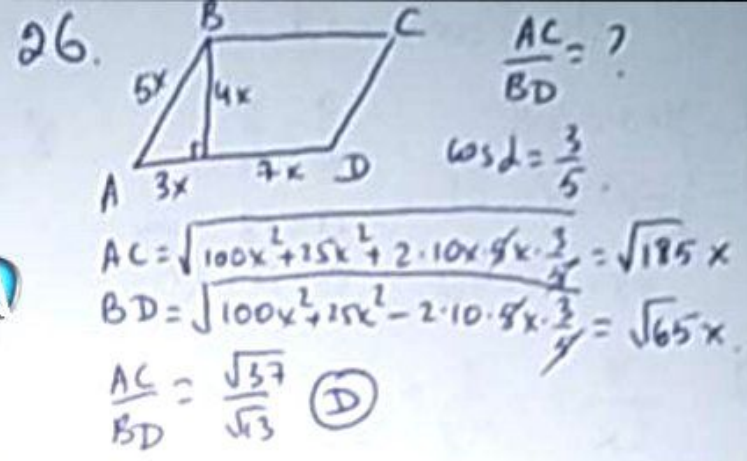 26.
B C
5x 4x
A 3x 7x D
AC/BD = ?
cos α = 3/5.
AC = √(100x² + 25x² + 2·10x·5x·3/5) = √185 x
BD = √(100x² + 25x² - 2·10·5x·3/5) = √65 x.
AC/BD = √37/√13 D